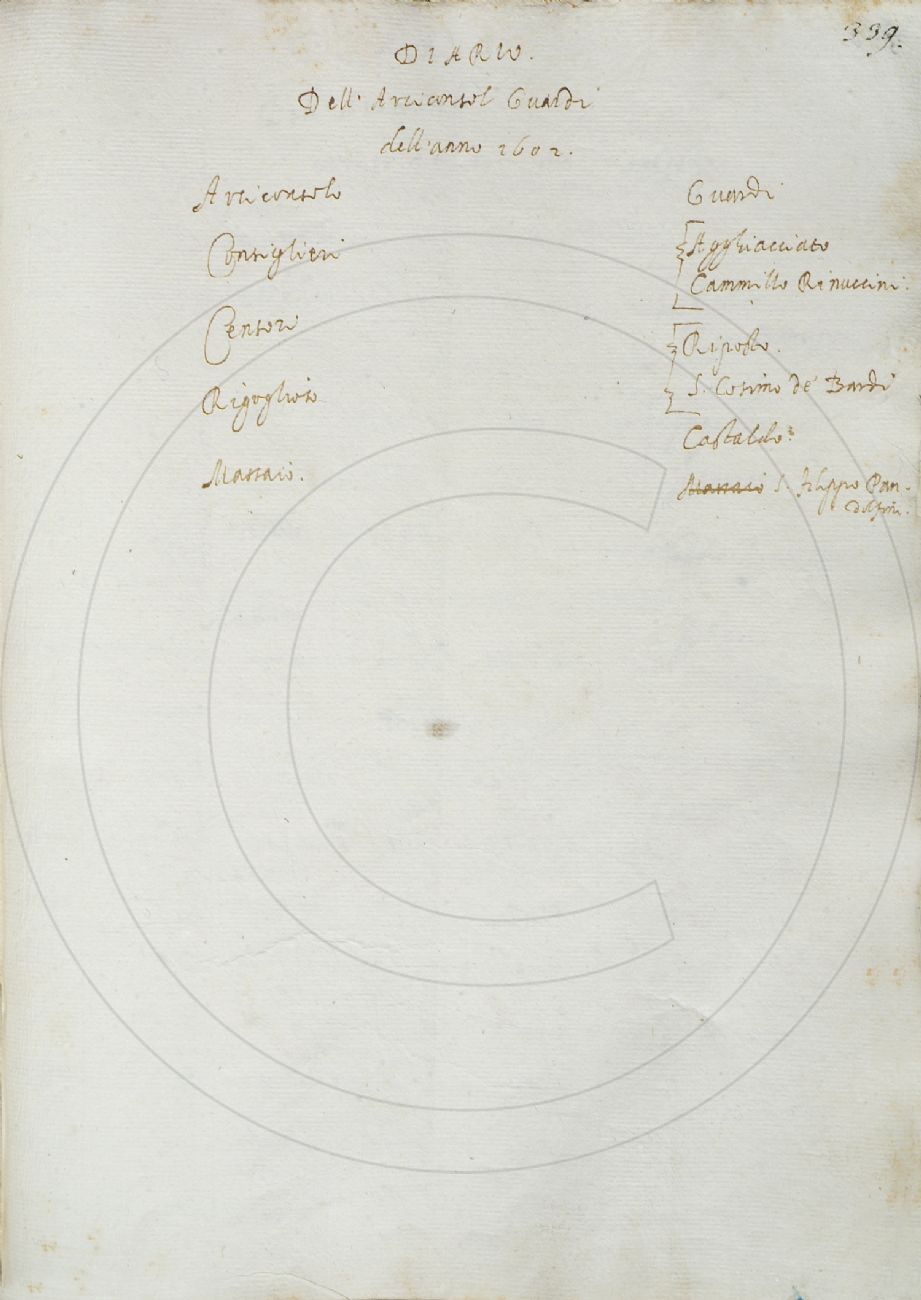 339.
DIARIO.
Dell' Arciconsol Guardi
dell'anno 1602.
Arciconsolo Guardi
Consiglieri Agghiacciato
Cammillo Rinuccini.
Censori Riposto.
S. Cosimo de' Bardi
Rigoglioso Castaldo
Massaio. Massaio S. Filippo Pan-
dolfini.